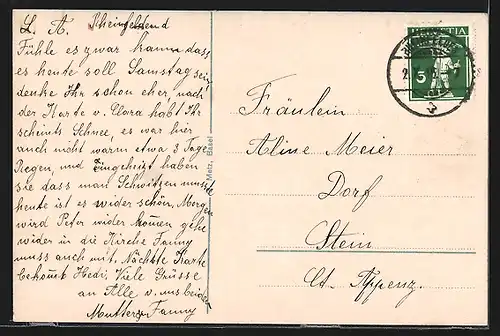 L. A. Rheinfelden d
Fühle es zwar kaum dass
es heute soll Samstag sein
denke Ihr schon eher, nach
der Karte v. Clara habt Ihr
scheints Schnee, es war hier
auch nicht warm etwa 3 Tage
Regen, und Eingeheizt haben
sie dass man Schwitzen musste
heute ist es wider schön, Morgen
wird Peter wider können gehe
wider in die Kirche Fanny
muss auch mit. Nächste Karte
bekommt Hedi, Viele Grüsse
an Alle v. uns beiden
Mutter & Fanny
Metz, Basel
HELVETIA
5
Fräulein
Aline Meier
Dorf
Stein
Ct. Appenz.